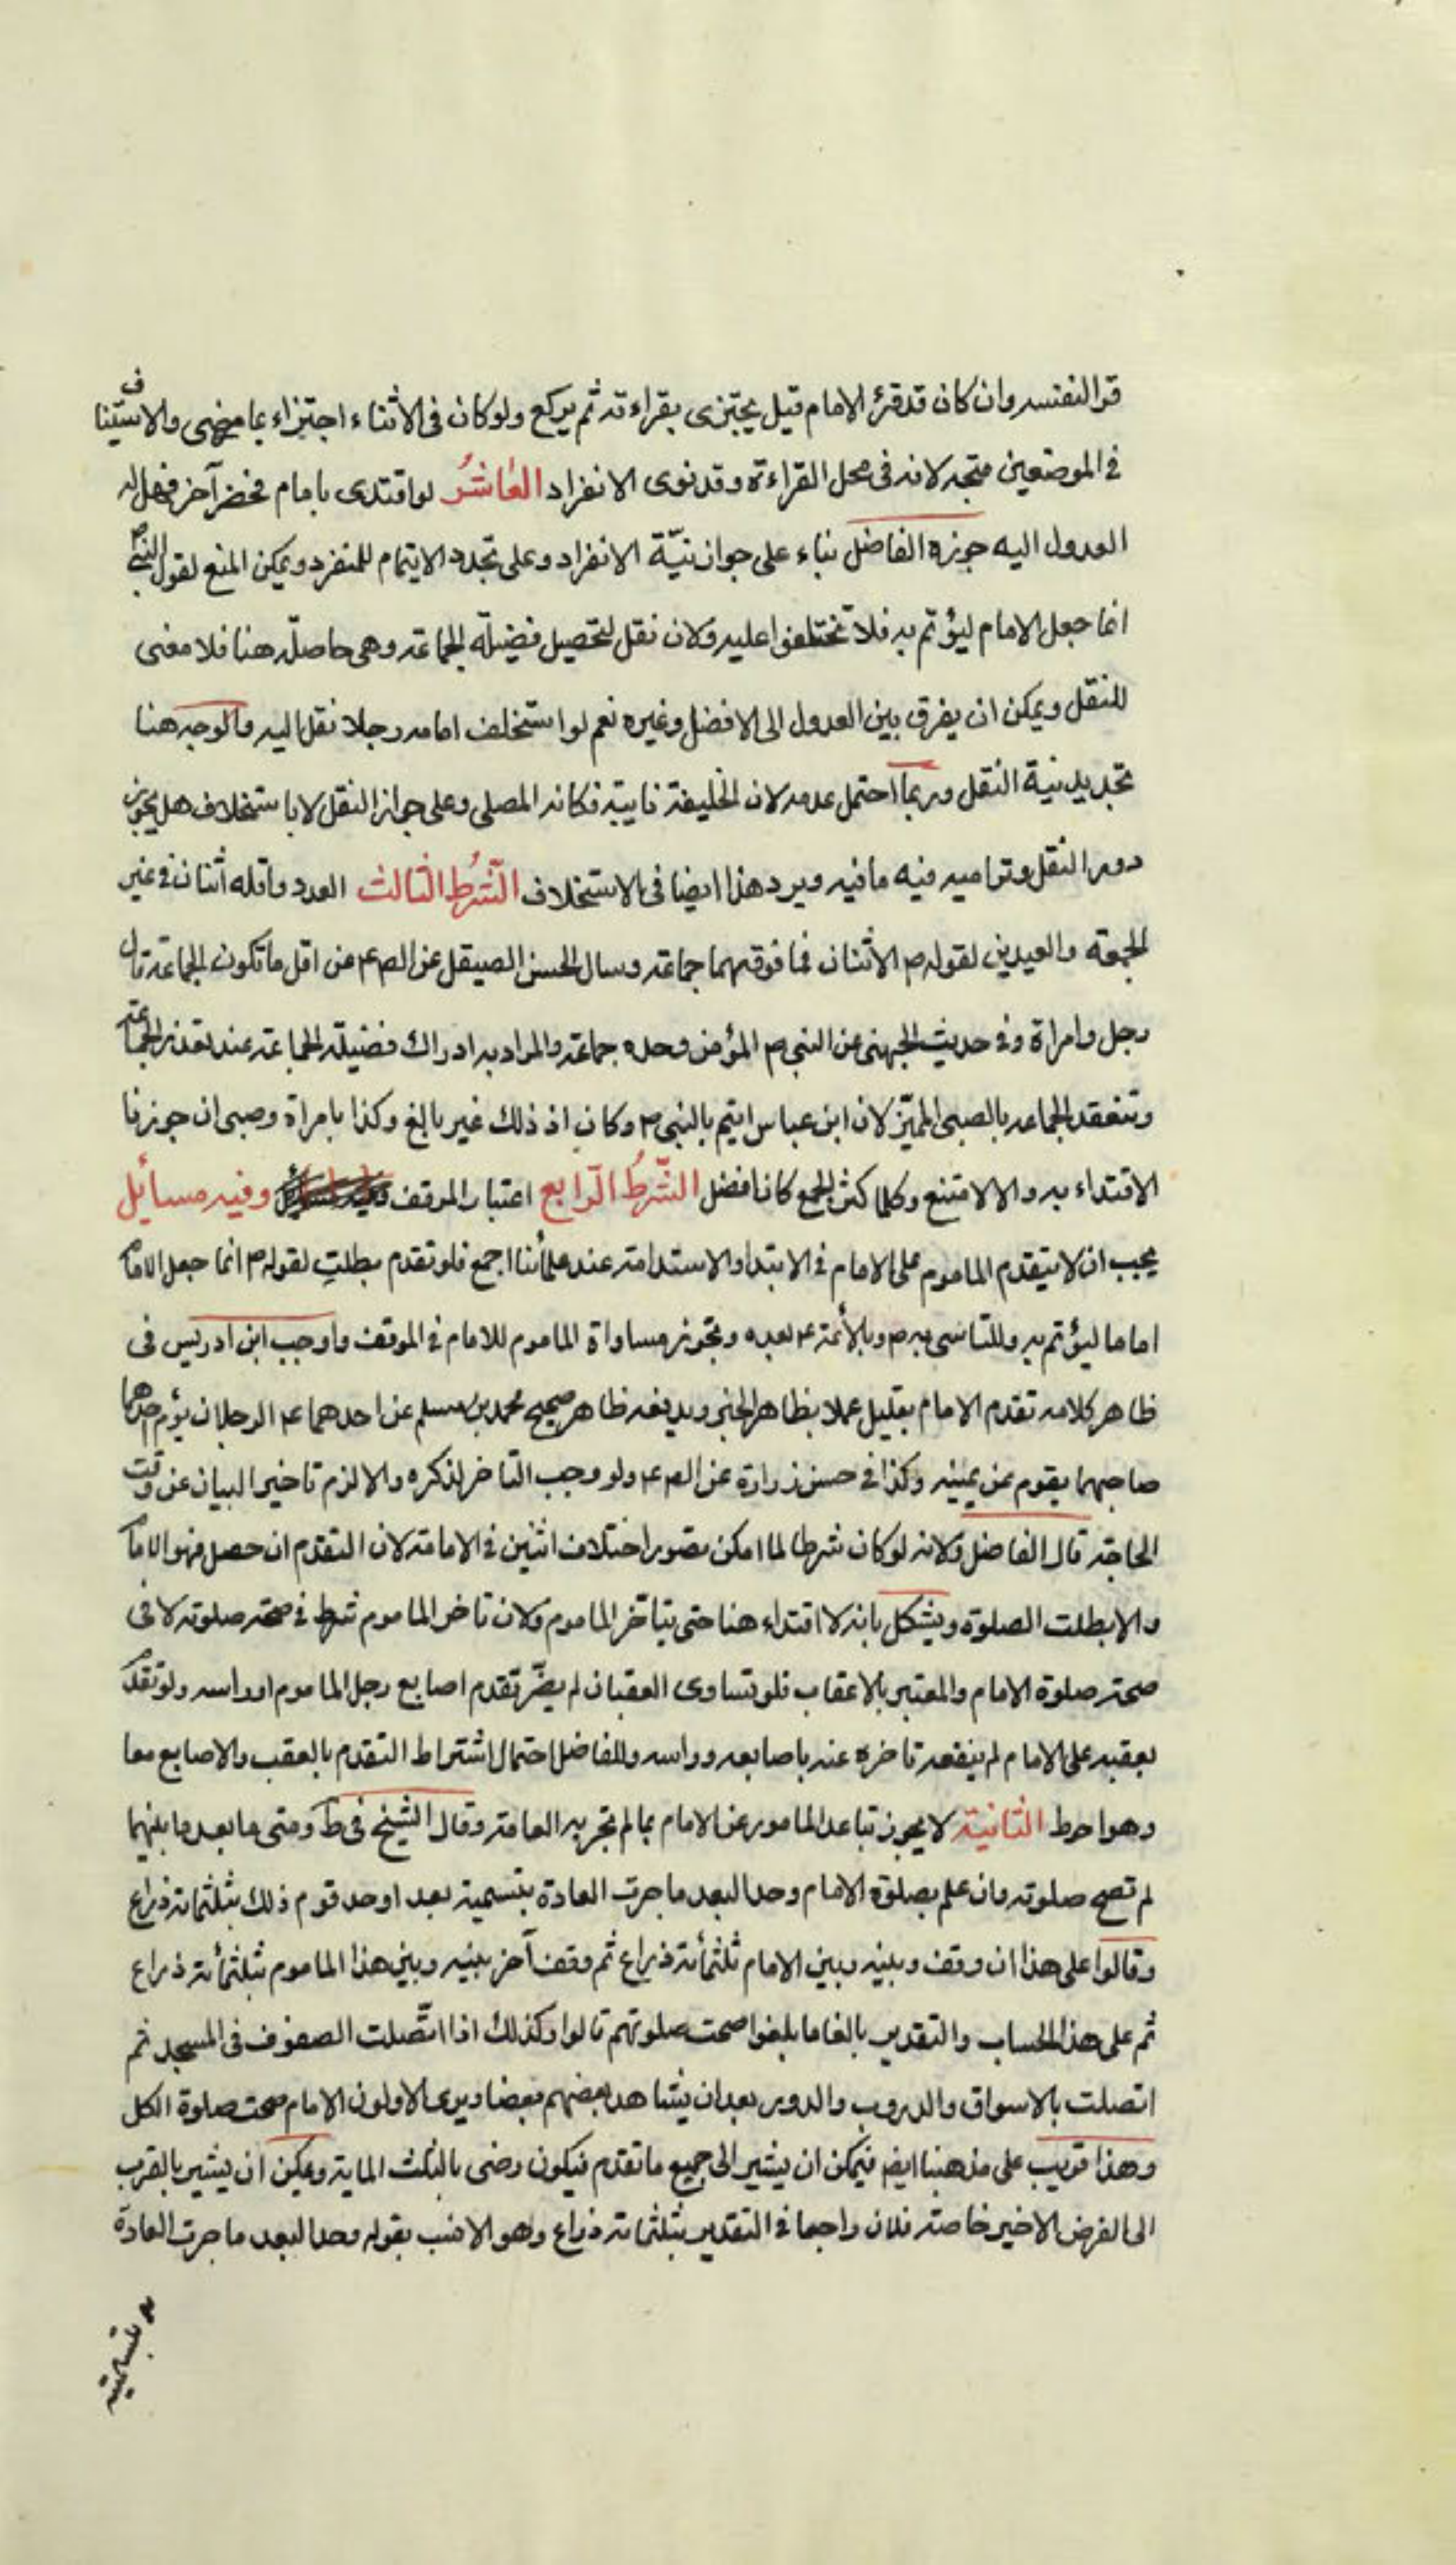 قرأ لنفسه وان كان قد قرئ الامام قيل يجتزى بقراءته ثم يركع ولو كان فى الاثناء اجتزاء بما مضى والاستيناف
فى الموضعين متجه لانه فى محل القراءة وقد نوى الانفراد العاشرُ لو اقتدى بامام فحضر آخر فهل له
العدول اليه جوزه الفاضل بناء على جواز نيّة الانفراد وعلى تجدد الايتمام للمنفرد ويمكن المنع لقول النبى ص
انما جعل الامام ليؤتم به فلا تختلفوا عليه ولان نقل لتحصيل فضيلة الجماعة وهى حاصلة هنا فلا معنى
للنقل ويمكن ان يفرق بين العدول الى الافضل وغيره نعم لو استخلف امامه رجلا نقل اليه والوجه هنا
تجديد نية النقل وربما احتمل عدمه لان الخليفة نايبة فكانه المصلى وعلى جواز النقل لا باستخلاف هل يجوز
دور النقل وتراميه فيه ما فيه ويرد هذا ايضا فى الاستخلاف الشّرطُ الثالث العدد واقله اثنان فى غير
الجمعة والعيدين لقوله ص الاثنان فما فوقهما جماعة وسال الحسن الصيقل عن الص ع عن اقل ما تكون الجماعة قال
رجل وامراة وفى حديث الجهنى عن النبى ص المؤمن وحده جماعة والمراد به ادراك فضيلة الجماعة عند تعذر الجماعة
وتنعقد الجماعه بالصبى المميّز لان ابن عباس ايتم بالنبى ص وكان اذ ذلك غير بالغ وكذا بامراة وصبى ان جوزنا
الاقتداء به والا لامتنع وكلما كثر الجمع كان افضل الشّرطُ الرّابع اعتبار الموقف وفيه مسائل
يجب ان لا يتقدم الماموم على الامام فى الابتدا والاستدامة عند علمائنا اجمع فلو تقدم بطلت لقوله ص انما جعل الامام
اماما ليؤتم به وللتاسى به ص وبالأئمة ع بعده وتجوز مساواة الماموم للامام فى الموقف واوجب ابن ادريس فى
ظاهر كلامه تقدم الامام بقليل عملا بظاهر الخبر ويدفعه ظاهر صحيح محمد بن مسلم عن احدهما ع الرجلان يؤم احدهما
صاحبهما يقوم عن يمينه وكذا فى حسن زرارة عن الص ع ولو وجب التاخر لذكره والا لزم تاخير البيان عن وقت
الحاجة قال الفاضل ولانه لو كان شرطا لما امكن تصور اختلاف اثنين فى الامامة لان التقدم ان حصل فهو الامام
والا بطلت الصلوة ويشكل بانه لا اقتداء هنا حتى يتاخر الماموم ولان تاخر الماموم شرط فى صحة صلوته لا فى
صحة صلوة الامام والمعتبر بالاعقاب فلو تساوى العقبان لم يضرّ تقدم اصابع رجل الماموم او راسه ولو تقدم
بعقبه على الامام لم ينفعه تاخره عنه باصابعه وراسه وللفاضل احتمال اشتراط التقدم بالعقب والاصابع معا
وهو احوط الثانية لا يجوز تباعد المامور عن الامام بما لم تجر به العادة وقال الشيخ فى ط ومتى ما بعد ما بينهما
لم تصح صلوته وان علم بصلوة الامام وحد البعد ما جرت العادة بتسميته بعدا وحد قوم ذلك بثلثمائة ذراع
وقالوا على هذا ان وقف وبينه وبين الامام ثلثمائة ذراع ثم وقف آخر بينه وبين هذا الماموم ثلثمائة ذراع
ثم على هذا الحساب والتقدير بالغا ما بلغوا صحت صلوتهم قالوا وكذلك اذا اتّصلت الصفوف فى المسجد ثم
اتصلت بالاسواق والدروب والدور بعد ان يشاهد بعضهم بعضا ويرى الاولون الامام صحت صلوة الكل
وهذا قريب على مذهبنا ايضا فيمكن ان يشير الى جميع ما تقدم فيكون رضى بالثلث المائة ويمكن ان يشير بالقرب
الى الفرض الاخير خاصة فلان راجعا فى التقدير بثلثمائة ذراع وهو الانسب بقوله وحد البعد ما جرت العادة
بتسميته